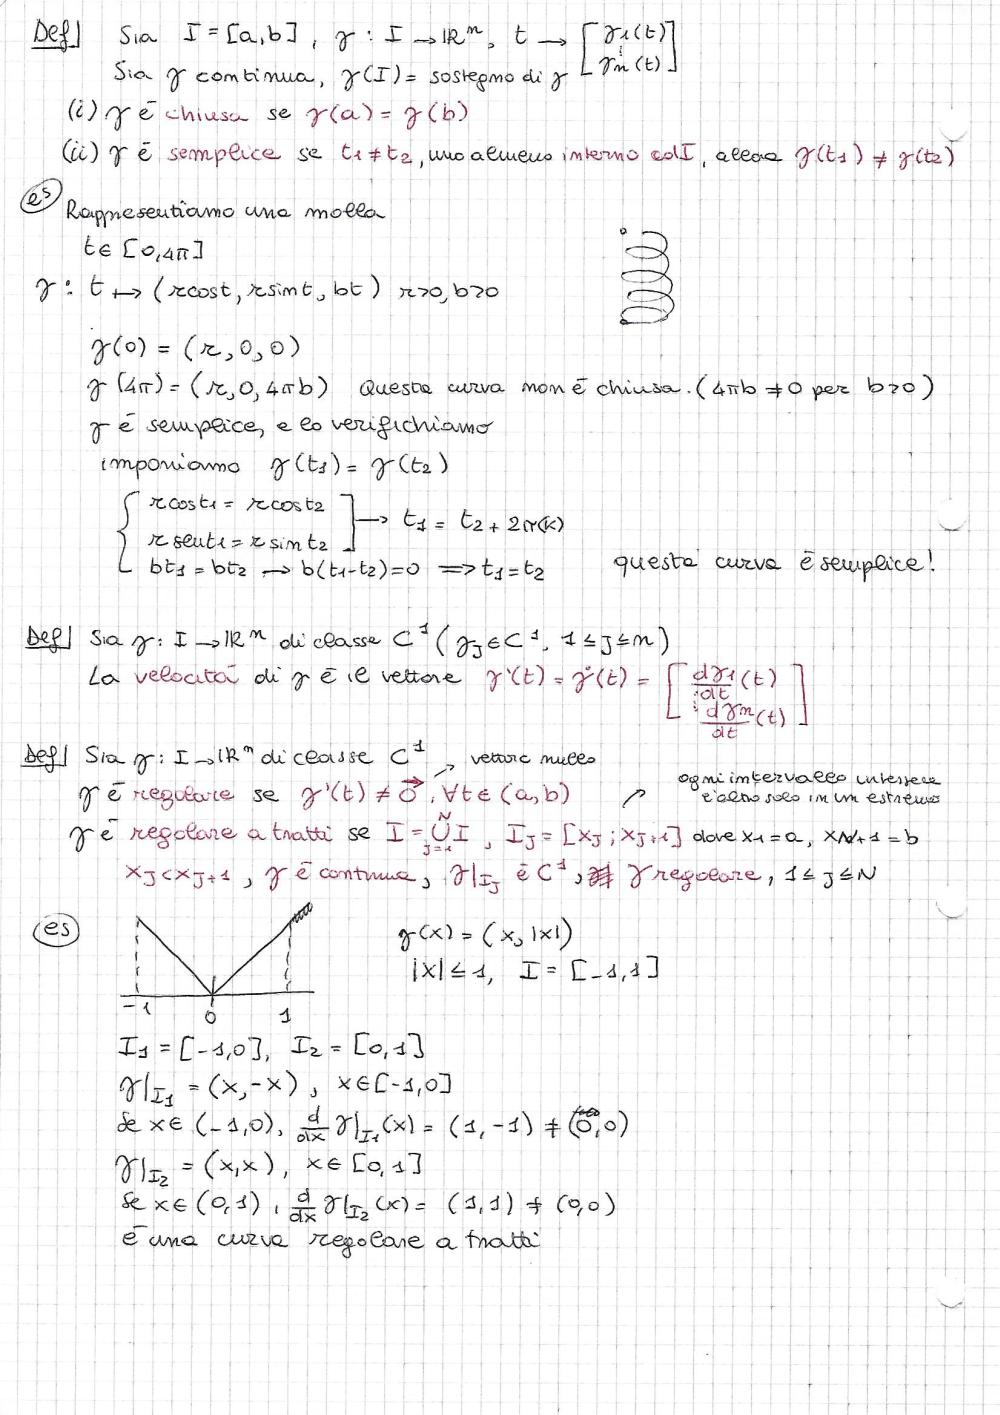 Def| Sia I = [a,b], γ : I → ℝⁿ, t → [γ1(t) ⋮ γn(t)]
Sia γ continua, γ(I) = sostegno di γ
(i) γ è chiusa se γ(a) = γ(b)
(ii) γ è semplice se t1 ≠ t2, uno almeno interno ad I, allora γ(t1) ≠ γ(t2)
es Rappresentiamo una molla
t ∈ [0,4π]
γ : t ↦ (rcost, rsint, bt) r>0, b>0
γ(0) = (r, 0, 0)
γ(4π) = (r, 0, 4πb) Questa curva non è chiusa. (4πb ≠ 0 per b>0)
γ è semplice, e lo verifichiamo
imponiamo γ(t1) = γ(t2)
{ rcost1 = rcost2
rsent1 = rsint2 ] → t1 = t2 + 2π(k)
bt1 = bt2 → b(t1-t2)=0 ⟹ t1=t2 questa curva è semplice!
Def| Sia γ : I → ℝⁿ di classe C¹ (γj ∈ C¹, 1 ≤ j ≤ n)
La velocità di γ è il vettore γ'(t) = γ̇(t) = [dγ1/dt (t) ⋮ dγn/dt (t)]
Def| Sia γ : I → ℝⁿ di classe C¹ → vettore nullo
γ è regolare se γ'(t) ≠ 0⃗, ∀t ∈ (a,b)
ogni intervallo interseca
l'altro solo in un estremo
γ è regolare a tratti se I = ⋃_{j=1}^{N} I, Ij = [xj ; xj+1] dove x1 = a, xN+1 = b
xj < xj+1, γ è continua, γ|Ij è C¹, γ regolare, 1 ≤ j ≤ N
es
γ(x) = (x, |x|)
|x| ≤ 1, I = [-1,1]
-1 0 1
I1 = [-1,0], I2 = [0,1]
γ|I1 = (x,-x), x ∈ [-1,0]
Se x ∈ (-1,0), d/dx γ|I1 (x) = (1,-1) ≠ (0,0)
γ|I2 = (x,x), x ∈ [0,1]
Se x ∈ (0,1), d/dx γ|I2 (x) = (1,1) ≠ (0,0)
è una curva regolare a tratti